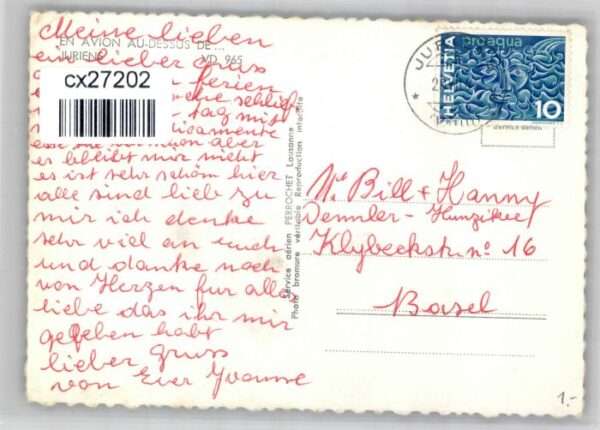 Meine lieben
EN AVION AU-DESSUS DE...
ein lieber gruss
JURIENS VD 965
ferien
cx27202
schlief
tag mit
icamente
aber
er bleibt mir nicht
es ist sehr schön hier
alle sind lieb zu
mir ich denke
sehr viel an euch
und danke noch
von Herzen fur alles
liebe das ihr mir
gegeben habt
lieber gruss
von Ever Yvonne
Service aérien PERROCHET Lausanne
Photo bromure véritable Reproduction interdite
JUR
HELVETIA
pro aqua
10
Bill + Hanny
Demmler-Hunziker
Klybeckstr. no 16
Basel
1.-